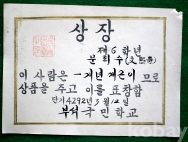 상장
제6학년
문희수
이 사람은 一개년 개근이 므로
상품을 주고 이를 표창함
단기 4292년 3월 12일
부석국민학교
kobay